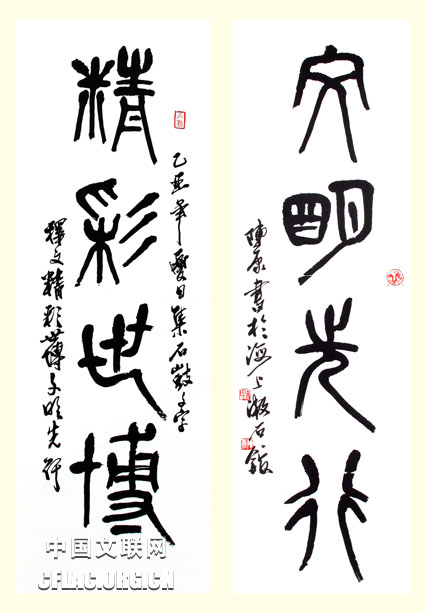 精彩世博
己丑年夏日集石鼓文字
釋文精彩世博文明先行
文明先行
陳康書於海上漱石館
中国文联网
CFLAC.ORG.CN